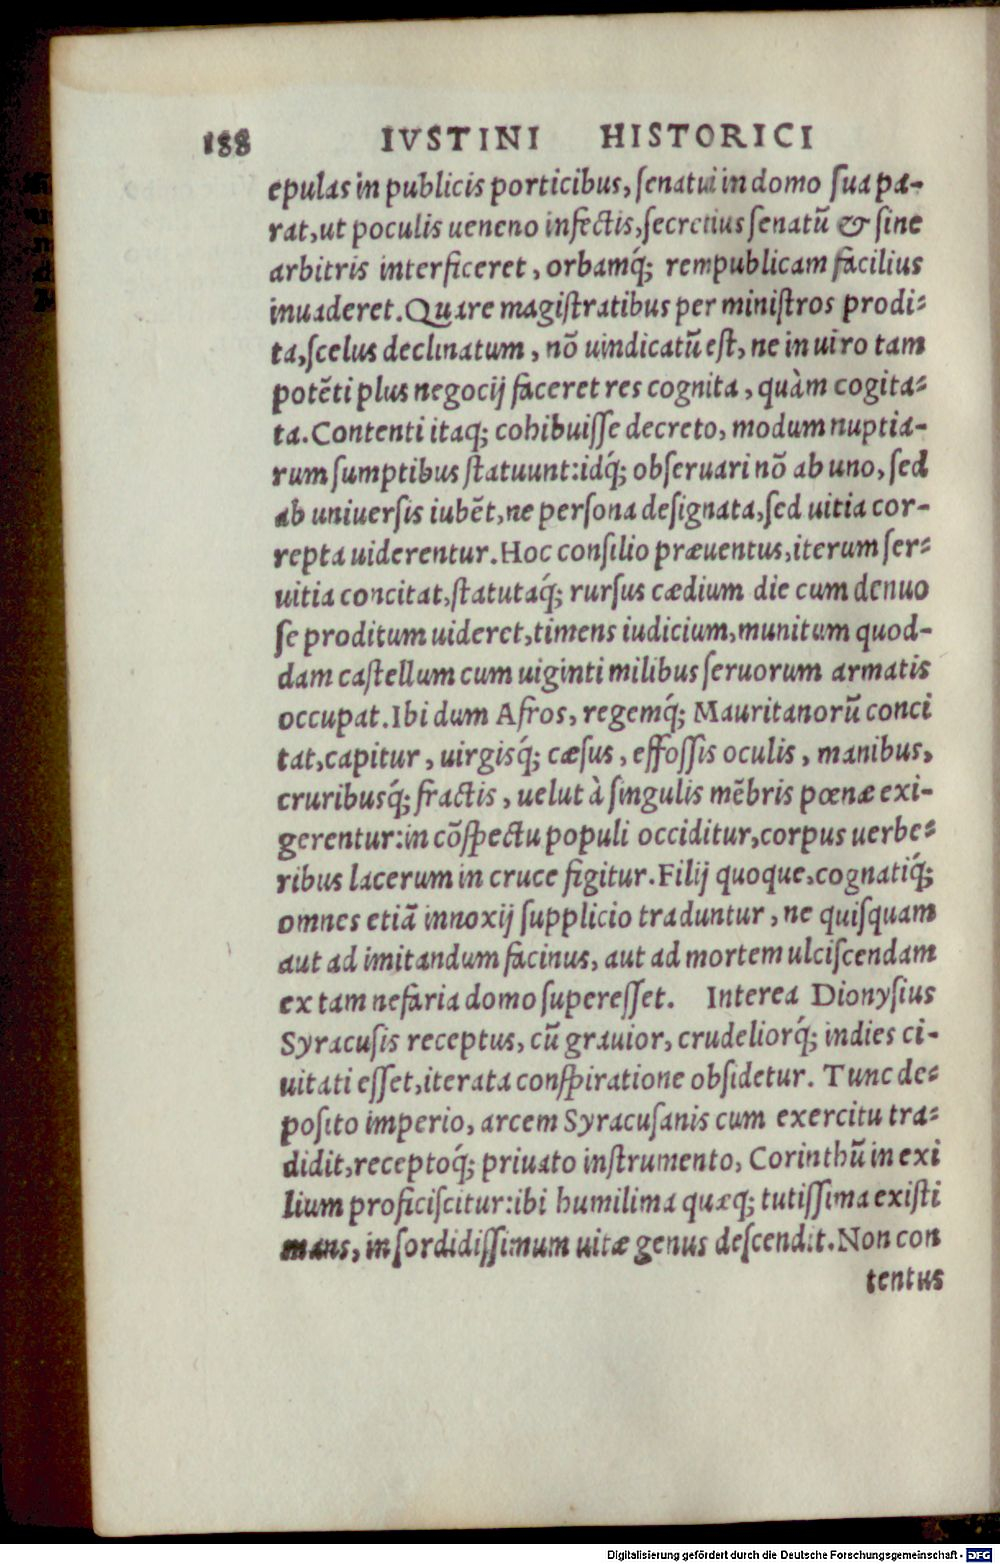 188 IVSTINI HISTORICI
epulas in publicis porticibus, ſenatui in domo ſua pa-
rat, ut poculis ueneno infectis, ſecretius ſenatũ & ſine
arbitris interficeret, orbamq́; rempublicam facilius
inuaderet. Quare magiſtratibus per miniſtros prodi-
ta, ſcelus declinatum, nõ uindicatũ eſt, ne in uiro tam
potẽti plus negocij faceret res cognita, quàm cogita-
ta. Contenti itaq; cohibuiſſe decreto, modum nuptia-
rum ſumptibus ſtatuunt: idq́; obſeruari nõ ab uno, ſed
ab uniuerſis iubẽt, ne perſona deſignata, ſed uitia cor-
repta uiderentur. Hoc conſilio præuentus, iterum ſer-
uitia concitat, ſtatutaq́; rurſus cædium die cum denuo
ſe proditum uideret, timens iudicium, munitum quod-
dam caſtellum cum uiginti milibus ſeruorum armatis
occupat. Ibi dum Afros, regemq́; Mauritanorũ conci
tat, capitur, uirgisq́; cæſus, effoſſis oculis, manibus,
cruribusq́; fractis, uelut à ſingulis mẽbris pœnæ exi-
gerentur: in cõſpectu populi occiditur, corpus uerbe-
ribus lacerum in cruce figitur. Filij quoque, cognatiq́;
omnes etiã innoxij ſupplicio traduntur, ne quiſquam
aut ad imitandum facinus, aut ad mortem ulciſcendam
ex tam nefaria domo ſupereſſet. Interea Dionyſius
Syracuſis receptus, cũ grauior, crudeliorq́; indies ci-
uitati eſſet, iterata conſpiratione obſidetur. Tunc de-
poſito imperio, arcem Syracuſanis cum exercitu tra-
didit, receptoq́; priuato inſtrumento, Corinthũ in exi
lium proficiſcitur: ibi humilima quæq; tutiſſima exiſti
mans, in ſordidiſſimum uitæ genus deſcendit. Non con
tentus
Digitalisierung gefördert durch die Deutsche Forschungsgemeinschaft - DFG